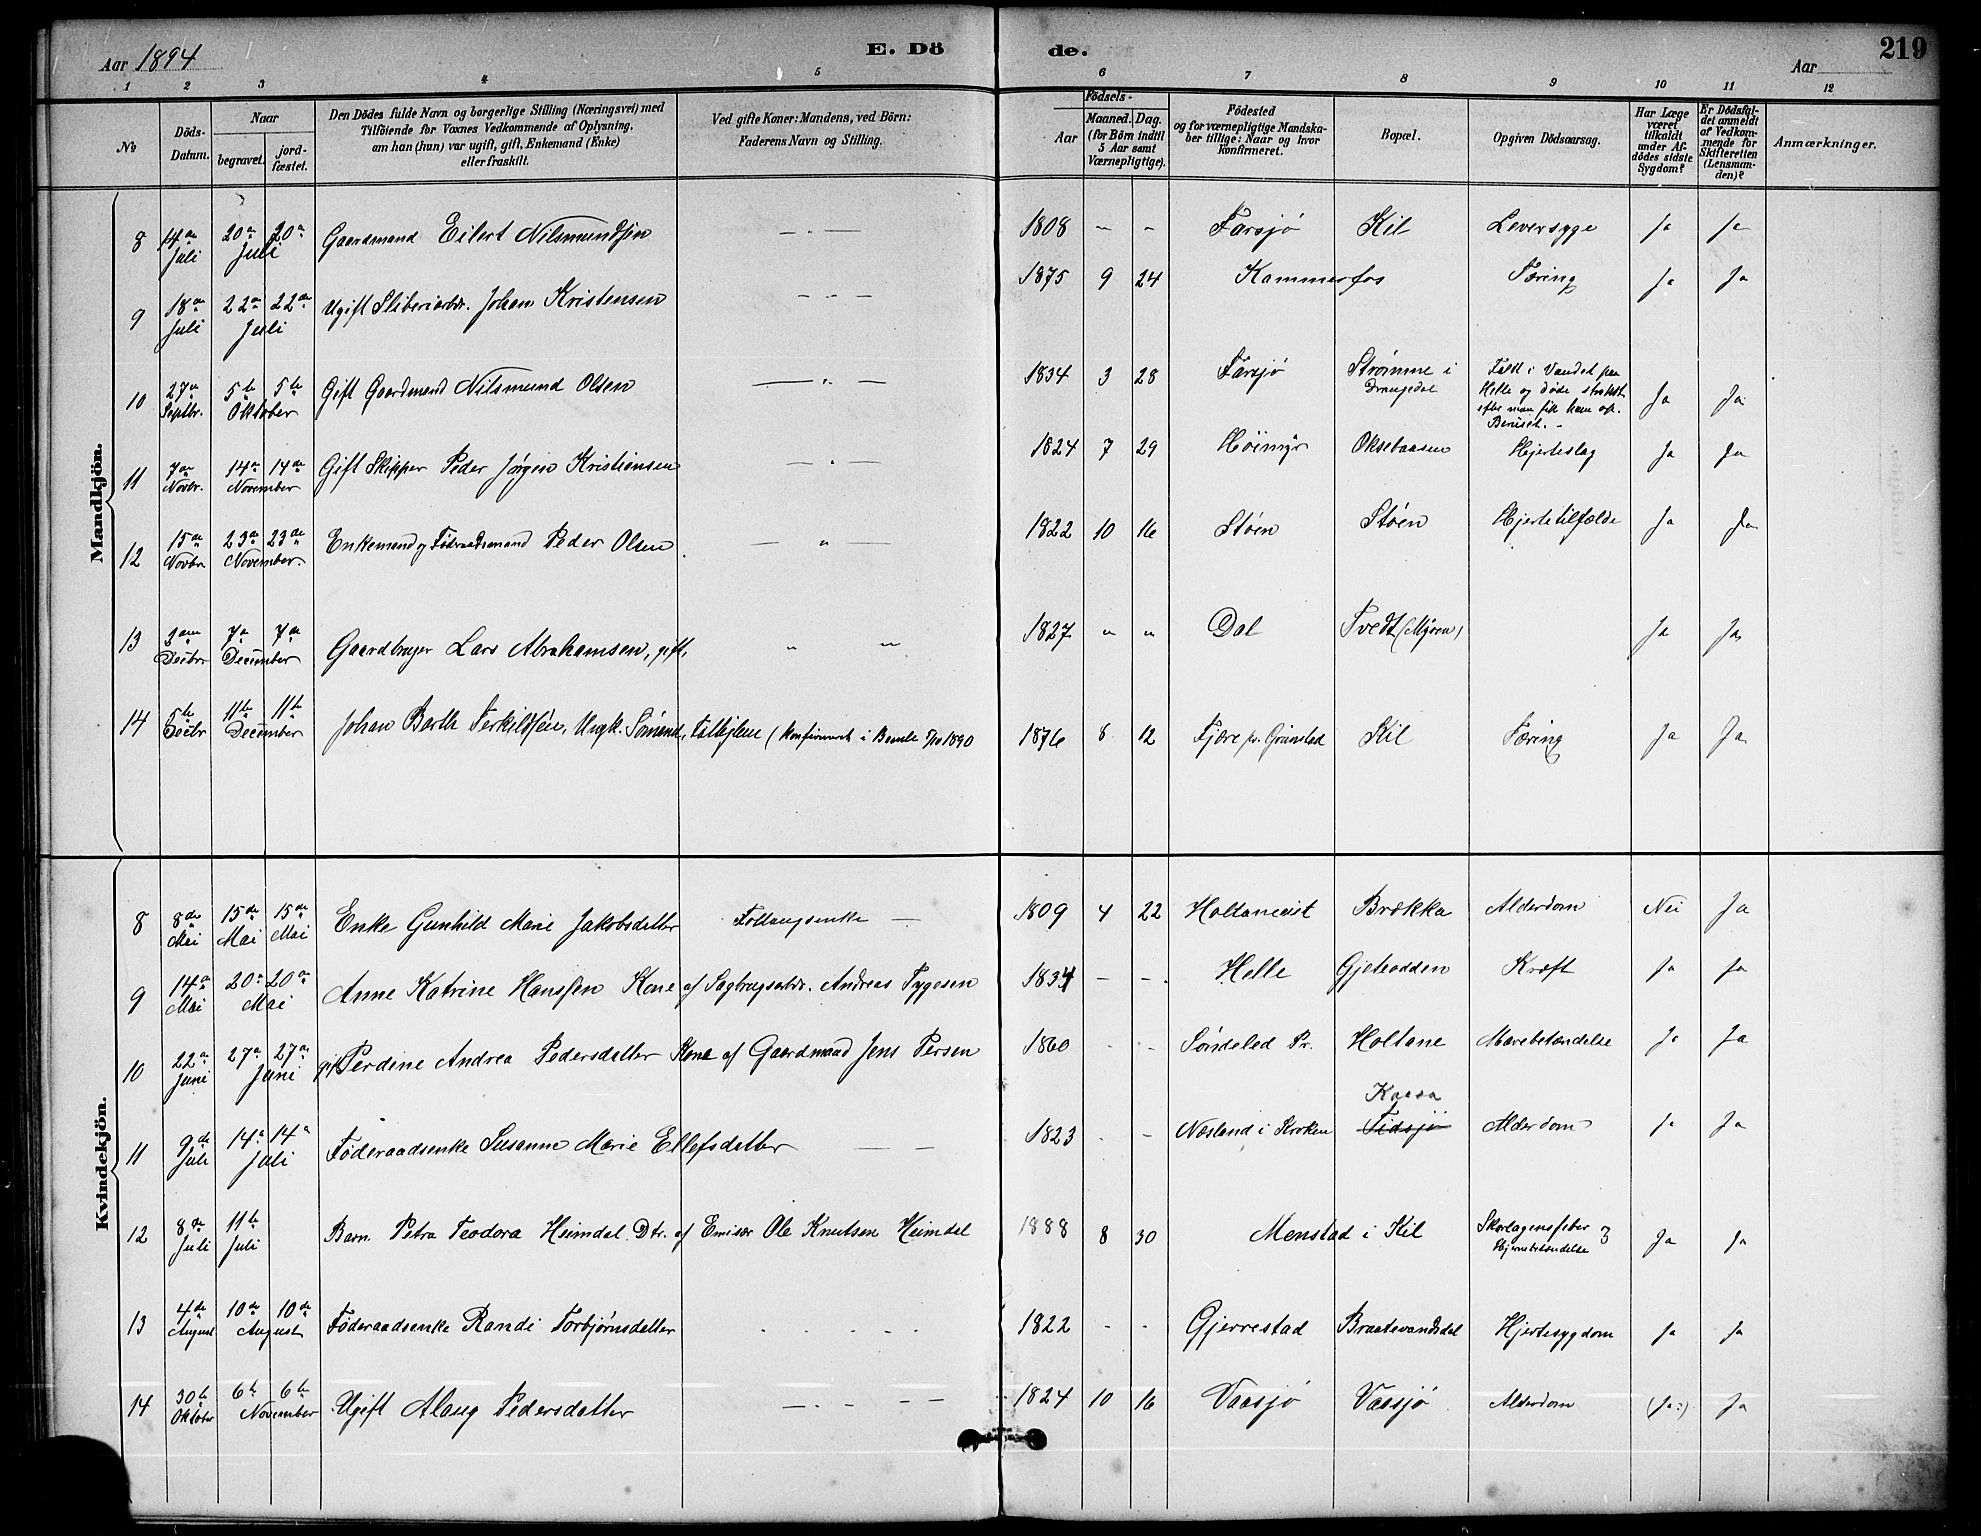 Aar 1894 E. Dö de. Aar 219
1 2 3 4 5 6 7 8 9 10 11 12
No Döds-Datum. Naar begravet. jord-fæstet. Den Dödes fulde Navn og borgerlige Stilling (Næringsvei) med Tilföiende for Voxnes Vedkommende af Oplysning, om han (hun) var ugift, gift, Enkemand (Enke) eller fraskilt. Ved gifte Koner: Mandens, ved Börn: Faderens Navn og Stilling. Födsels- Aar Maaned. Dag. (for Börn indtil 5 Aar samt Værnepligtige). Födested og for værnepligtige Mandska-ber tillige: Naar og hvor konfirmeret. Bopæl. Opgiven Dödsaarsag. Har Læge været tilkaldt under Af-dödes sidste Sygdom? Er Dödsfal-det anmeldt af Vedkom-mende for Skifteretten (Lensman-den)? Anmærkninger.
Mandkjön.
8 14de Juli 20de Juli 20de Gaardmand Eilert Nilsmundsen 1808 — — Farsjø Kil Leversyge Ja Ja
9 18de Juli 22de Juli 22de Ugift Sliberiarbdr. Johan Kristensen 1875 9 24 Kammerfos Tæring Ja Ja
10 27de Septbr. 5te Oktober 5te Gift Gaardmand Nilsmund Olsen 1834 3 28 Farsjø Strømme i Drangedal Faldt i Vandet paa Helle og døde strakst efter man fik ham op. Beruset. Ja Ja
11 7de Novbr. 14de November 14de Gift Skipper Peder Jørgen Kristiansen 1824 7 29 Høimyr Oksebaasen Hjerteslag Ja Ja
12 15de Novbr 23de November 23de Enkemand og Føderaadsmand Peder Olsen 1822 10 16 Støen Støen Hjertetilfælde Ja Ja
13 Decbr 7de December 7de Gaardbruger Lars Abrahamsen, gift, 1827 " " Dal Tvedt (Myren) Ja Ja
14 5te Decbr 11te December 11te Johan Barth Terkildsen, Ungk. Sømand, (Konfirmeret i Bamle 5/10 1890 1876 8 12 Fjære pr. Grimstad Kil Tæring Ja Ja
Kvindekjön.
8 8de Mai 15de Mai 15de Mai Enke Gunhild Marie Jakobsdatter 1809 4 22 Brækka Alderdom Nei Ja
9 14de Mai 20de Mai 20de Anne Katrine Hanssen Kone af Sagbrugsarbdr. Andreas Tygesen 1834 — — Helle Gjeteodden Kræft Ja Ja
10 22de Juni 27de Juni 27de gift Perdine Andrea Pedersdatter Kone af Gaardmand Jens Persen 1860 Søndeled Pr. Holtane Mavebetændelse Ja Ja
11 9de Juli 14de Juli 14de Føderaadsenke Susanne Marie Ellefsdatter 1823 Næsland i Kroken Kaasa Tidsjø Alderdom Ja Ja
12 8de Juli 11te Juli Barn Petra Teodora Heimdal Dtr. af Emisær Ole Knutsen Heimdal 1888 8 30 Menstad i Kil Skarlagensfeber og Hjernebetændelse Ja Ja
13 4de August 10de August 10de Føderaadsenke Randi Torbjørnsdatter 1822 Gjerrestad Braatevandsdal Hjertesygdom Ja Ja
14 30te Oktober 6te November 6te Ugift Alaug Pedersdatter 1824 10 16 Vaasjø Vaasjø Alderdom (Ja) Ja